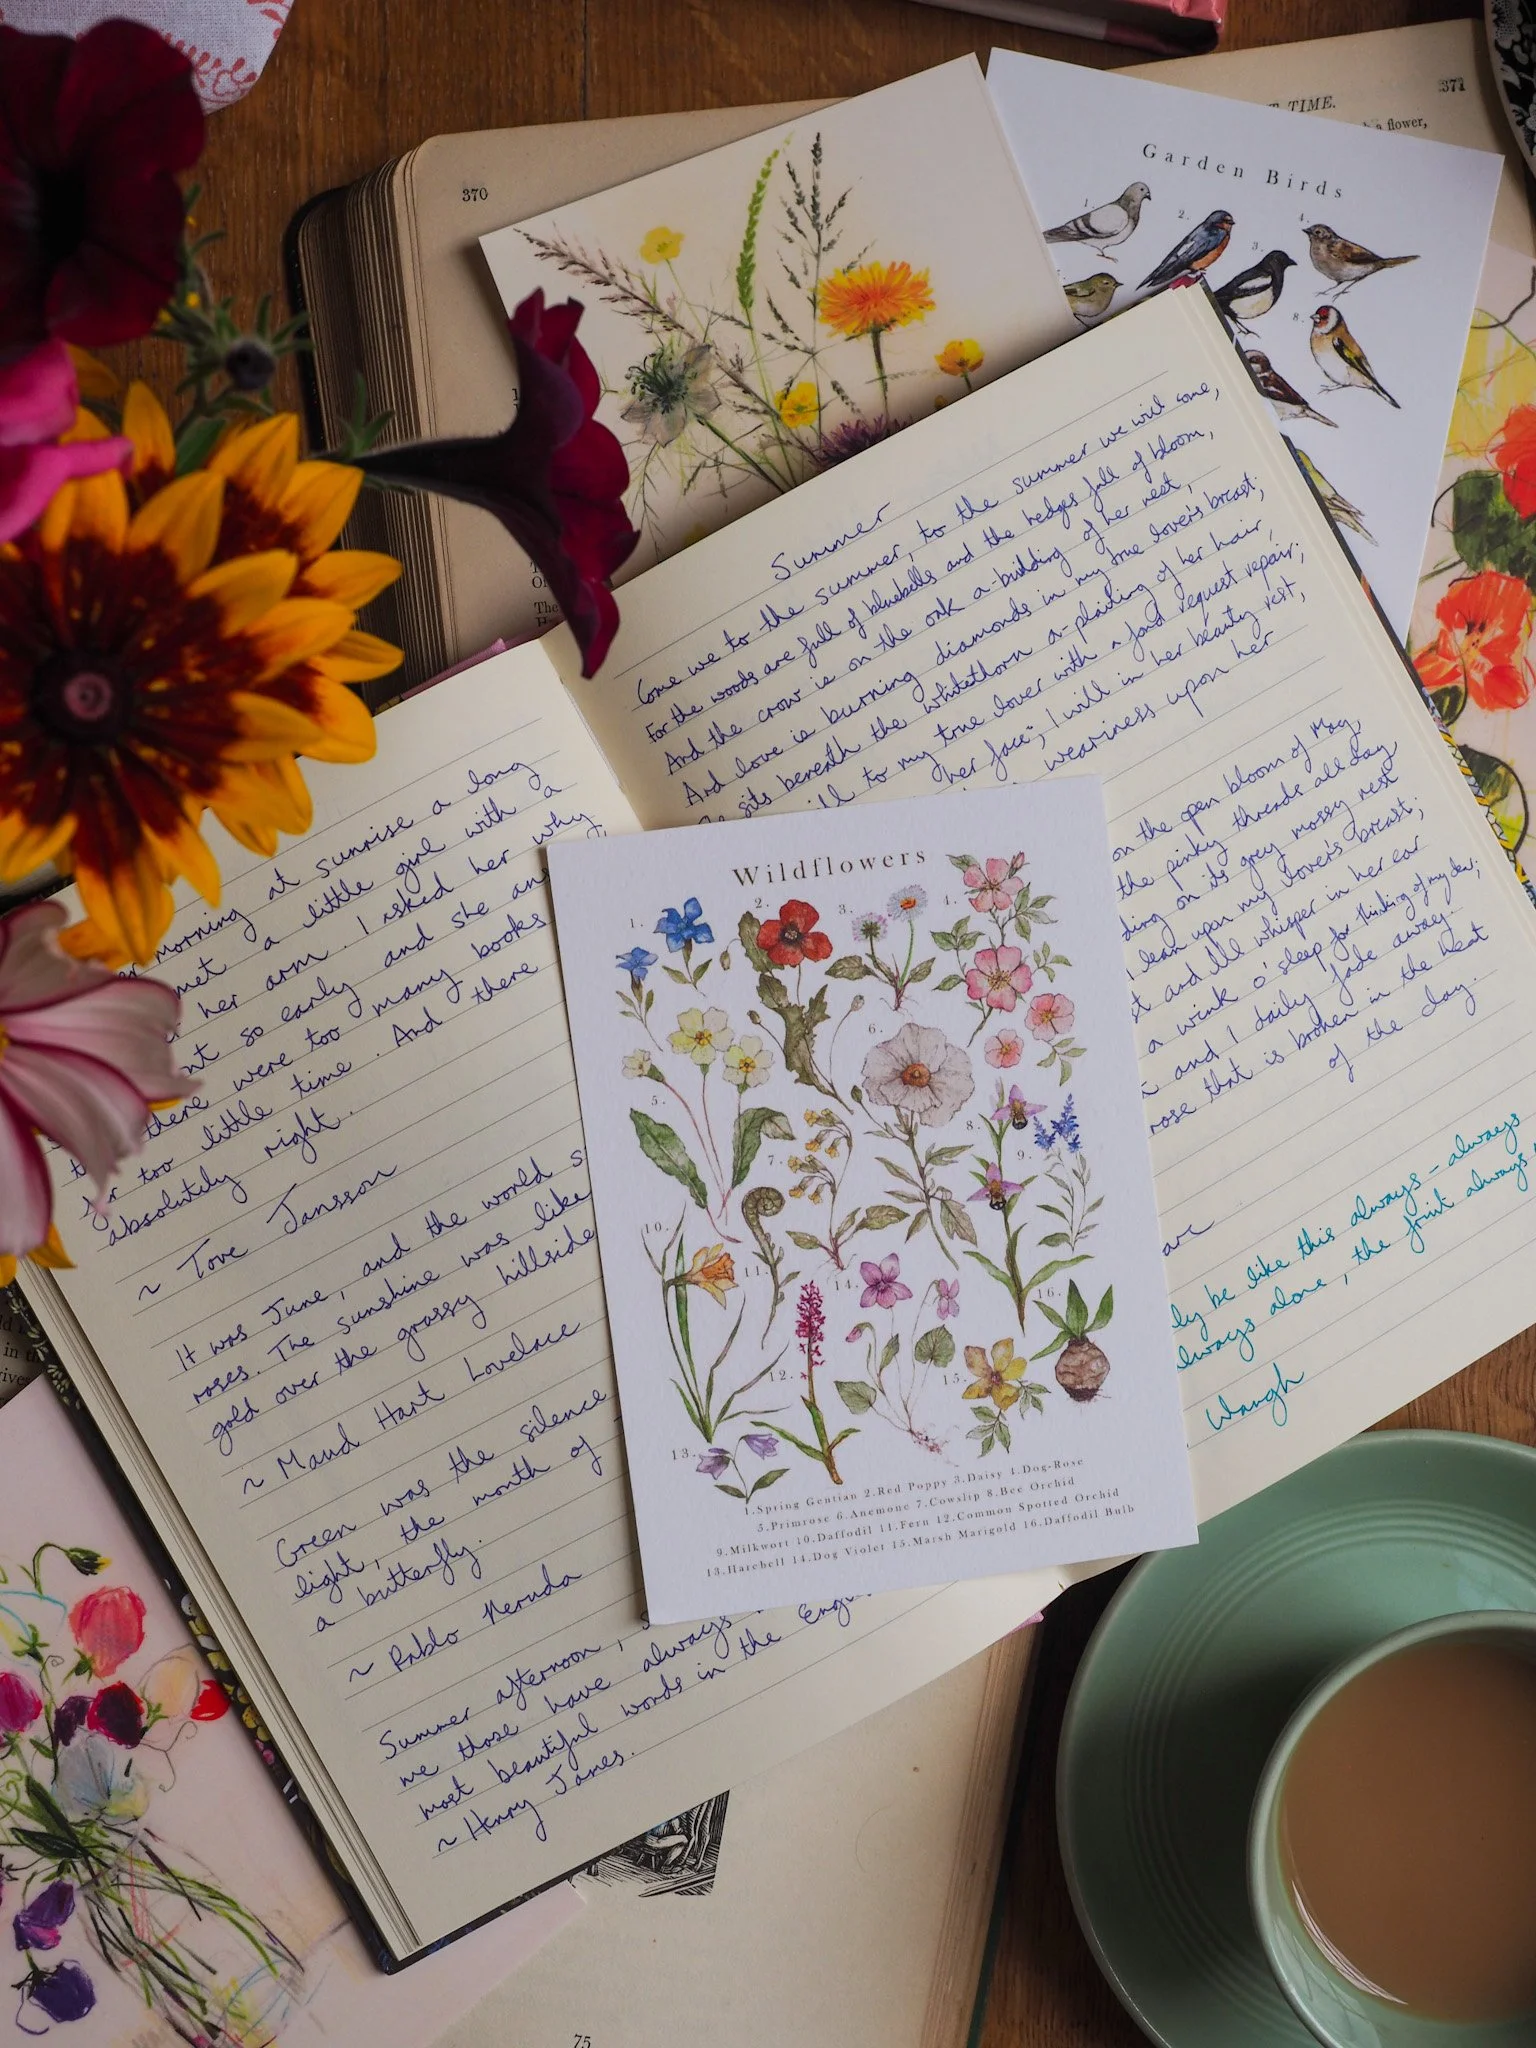 370
371
TIME.
a flower,
Garden Birds
1.
2.
3.
4.
8.
Summer
Come we to the summer, to the summer we will come,
For the woods are full of bluebells and the hedges full of bloom,
And the crow is on the oak a-building of her nest,
And love is burning diamonds in my true lover's breast;
sits beneath the whitethorn a-plaiting of her hair,
to my true lover with a fond request repair;
her face; I will in her beauty rest,
weariness upon her
on the open bloom of May,
the pinky threads all day
on its grey mossy nest
lean upon my lover's breast;
and I'll whisper in her ear
a wink o' sleep for thinking of my dear;
and I daily fade away
rose that is broken in the heat
of the day.
be like this always - always
always alone, the fruit always
Waugh
morning at sunrise a long
met a little girl with a
her arm. I asked her why
so early and she
there were too many books
far too little time. And there
absolutely right.
~ Tove Jansson
It was June, and the world
roses. The sunshine was like
gold over the grassy hillside
~ Maud Hart Lovelace
Green was the silence
light, the month of
a butterfly.
~ Pablo Neruda
Summer afternoon,
me those have always
most beautiful words in the
~ Henry James.
Wildflowers
1.
2.
3.
4.
5.
6.
7.
8.
9.
10.
11.
12.
13.
14.
15.
16.
1.Spring Gentian 2.Red Poppy 3.Daisy 4.Dog-Rose
5.Primrose 6.Anemone 7.Cowslip 8.Bee Orchid
9.Milkwort 10.Daffodil 11.Fern 12.Common Spotted Orchid
13.Harebell 14.Dog Violet 15.Marsh Marigold 16.Daffodil Bulb
75